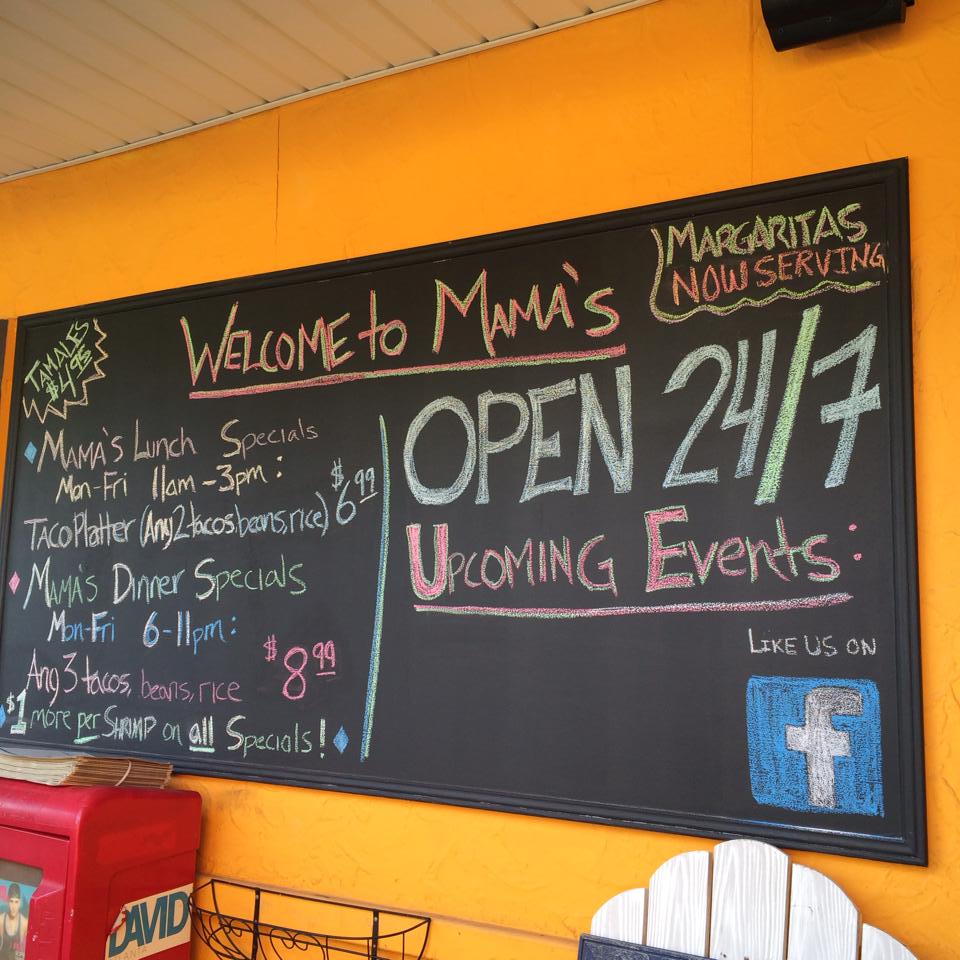 MARGARITAS
NOW SERVING
WELCOME to MAMA'S
TAMALES
$4.95
OPEN 24/7
MAMA'S Lunch Specials
Mon-Fri 11am-3pm:
TACO Platter (Any 2 tacos, beans, rice) $6.99
MAMA'S Dinner Specials
Mon-Fri 6-11pm:
Any 3 tacos, beans, rice $8.99
$1 more per SHRIMP on all Specials!
UPCOMING Events:
LIKE US ON
f
DAVID